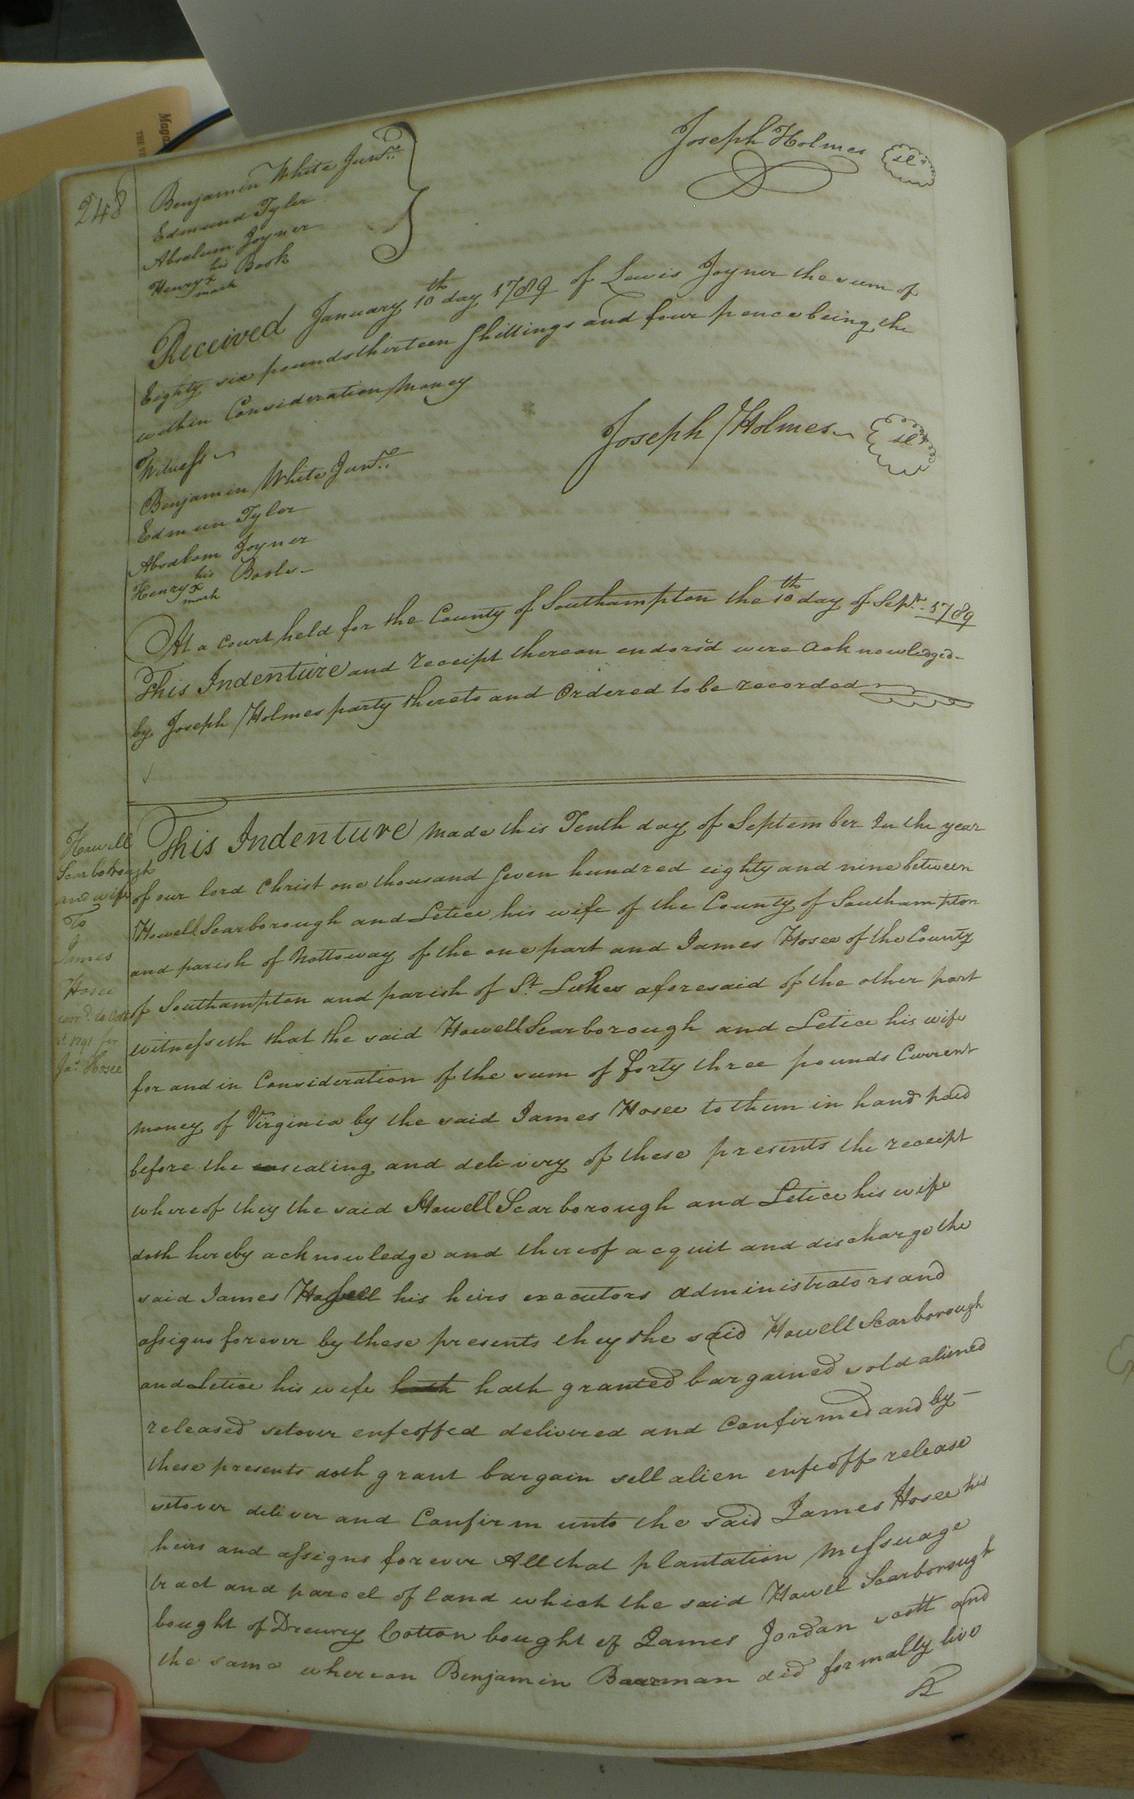 248
Benjamin White Junr.
Edmund Tyler
Absalom Joyner
his
Henry x Bosk
mark
Joseph Holmes
Received January 10th day 1789 of Lewis Joyner the sum of
Eighty six pounds thirteen Shillings and four pence being the
within Consideration Money
Joseph Holmes
Witness
Benjamin White Junr.
Edmun Tyler
Absalom Joyner
his
Henry x
mark
At a court held for the County of Southampton the 10th day of Sept. 1789
This Indenture and receipt thereon endors'd were acknowledged
by Joseph Holmes party thereto and Ordered to be recorded
Howell
Scarborough
and wife
To
James
Hosee
1791 for
Jas. Hosee
This Indenture made this Tenth day of September In the year
of our lord Christ one thousand Seven hundred eighty and nine between
Howell Scarborough and Letice his wife of the County of Southampton
and parish of Nottoway of the one part and James Hosee of the County
of Southampton and parish of St. Lukes aforesaid of the other part
witnesseth that the said Howell Scarborough and Letice his wife
for and in Consideration of the sum of forty three pounds Current
money of Virginia by the said James Hosee to them in hand paid
before the sealing and delivery of these presents the receipt
whereof they the said Howell Scarborough and Letice his wife
doth hereby acknowledge and thereof acquit and discharge the
said James his heirs executors administrators and
assigns forever by these presents they the said Howell Scarborough
and Letice his wife hath hath granted bargained sold aliened
released setover enfeoffed delivered and Confirmed and by
these presents doth grant bargain sell alien enfeoff release
setover deliver and Confirm unto the said James Hosee his
heirs and assigns forever All that plantation Messuage
tract and parcel of land which the said Howel Scarborough
bought of Drewry Cotton bought of James Jordan scott and
the same whereon Benjamin Baarman did formally live